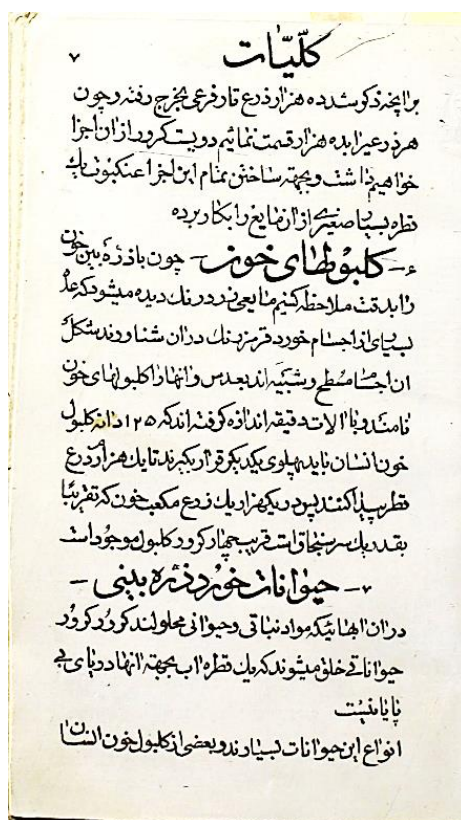 ۷ كلّيّات
برانچه ذكر شده هزار ذرع تار فرعی بخرج رفته و چون
هر ذرعیرا بده هزار قسمت نمائیم دویست كرور ازان اجزا
خواهیم داشت و بجهته ساختن تمام این اجزا عنكبوت یك
قطره بسیار صغیری ازان مایع را بكار برده
۶ – كلبولهای خون – چون با ذره بین خون
را بدقت ملاحظه كنیم مایعی زرد رنك دیده میشود كه عدّ
بسیاری از اجسام خورد قرمز رنك دران شناورند شكل
ان اجسام مسطح و شبیه اند بعدس و انها را كلبولهای خون
نامند و با الات دقیقه اندازه كرفته اند كه ۱۲۵ دانه كلبول
خون انسان باید پهلوی یكدیكر قرار بكیرند تا یك هزارم ذرع
قطر پیدا كنند پس در یكهزار یك ذرع مكعب خون كه تقریبًا
بقدر یك سر سنجاق است قریب چهار كرور كلبول موجود است
۷ – حیوانات خورد ذرّه بینی –
دران ابهائیكه مواد نباتی و حیوانی محلولند كرور كرور
حیواناتی خلق میشوند كه یك قطره اب بجهته انها دریای بی
پایانیست
انواع این حیوانات بسیارند و بعضی از كلبول خون انسان